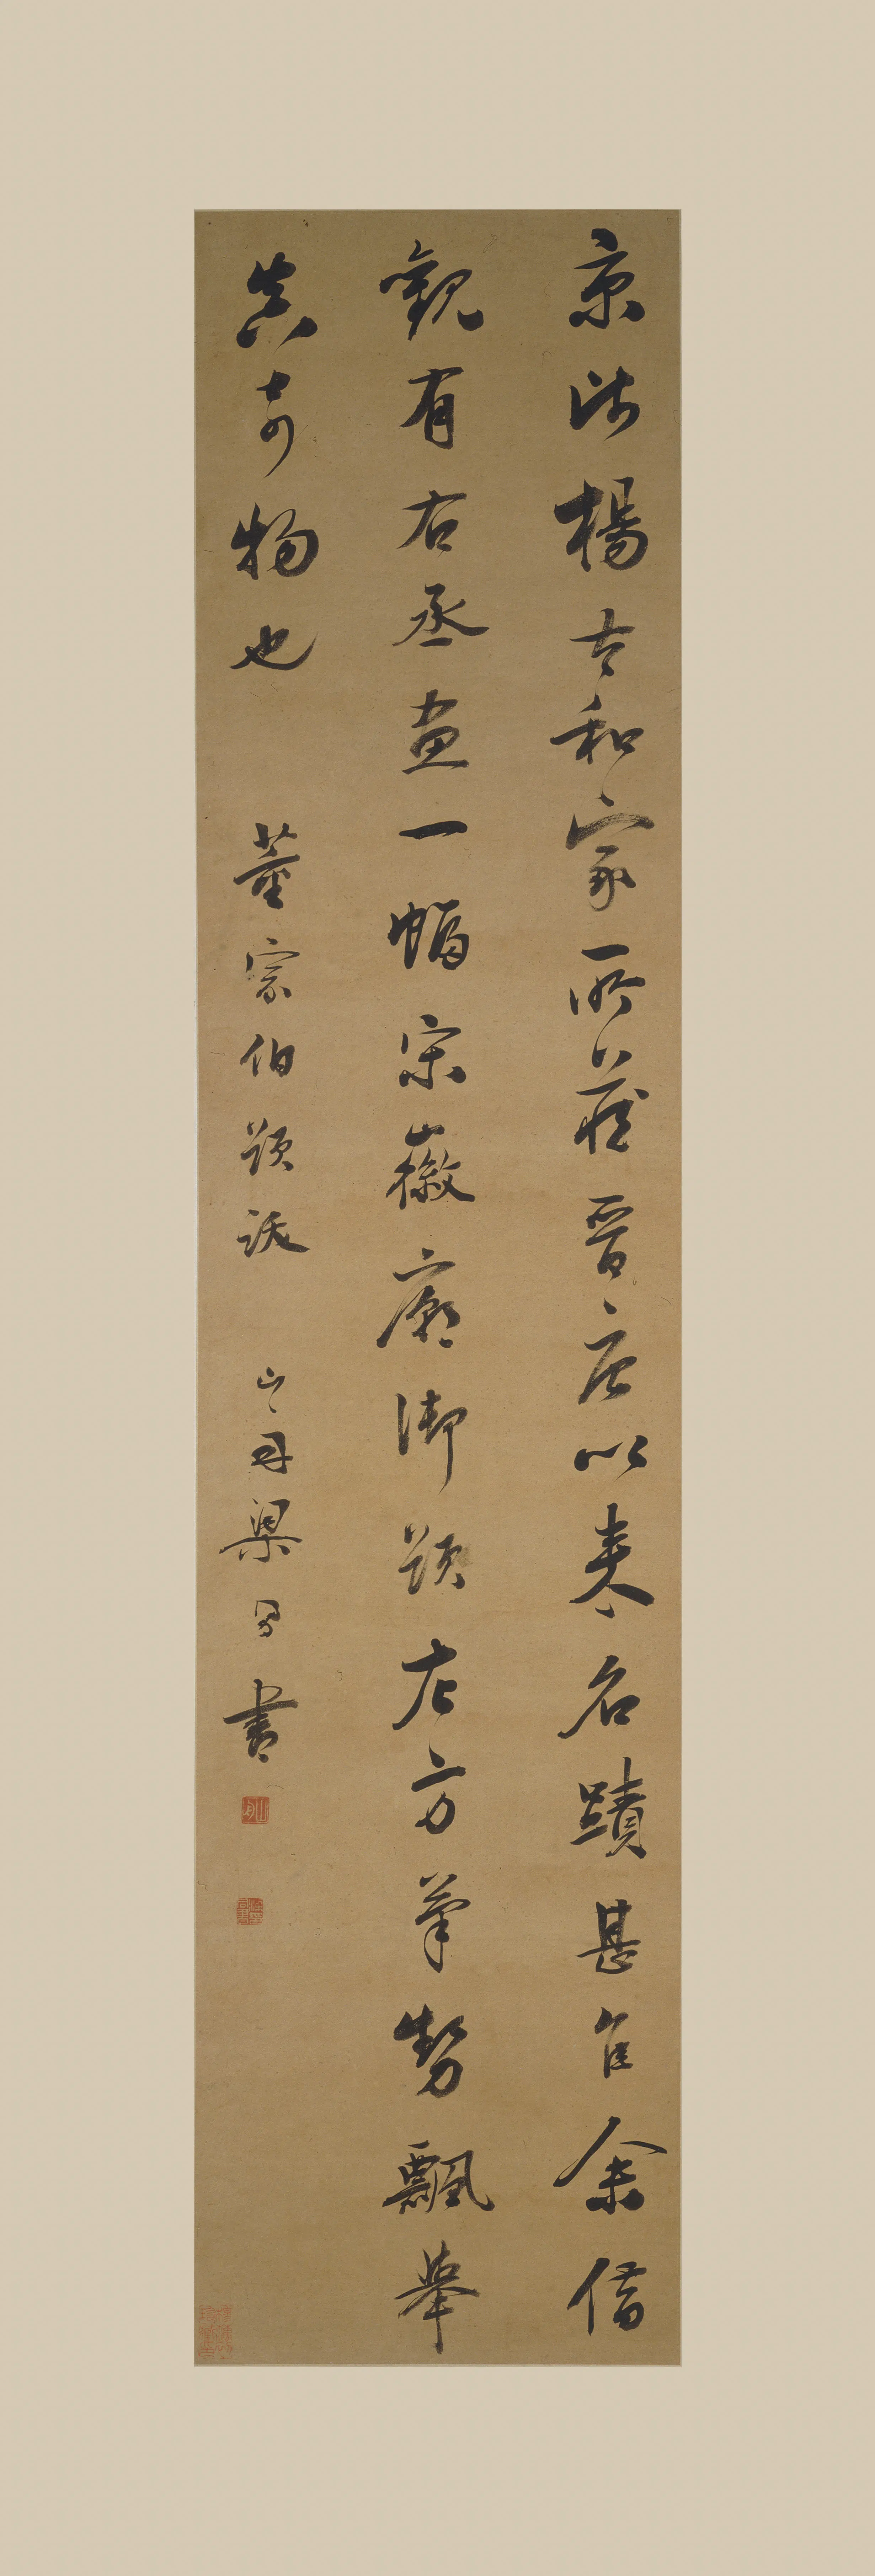 京師楊太和家所藏晉唐以來名蹟甚佳余借
觀有右丞畫一幅宋徽廟御題左方筆勢飄舉
真奇物也 董宗伯題跋 山舟梁同書
山舟